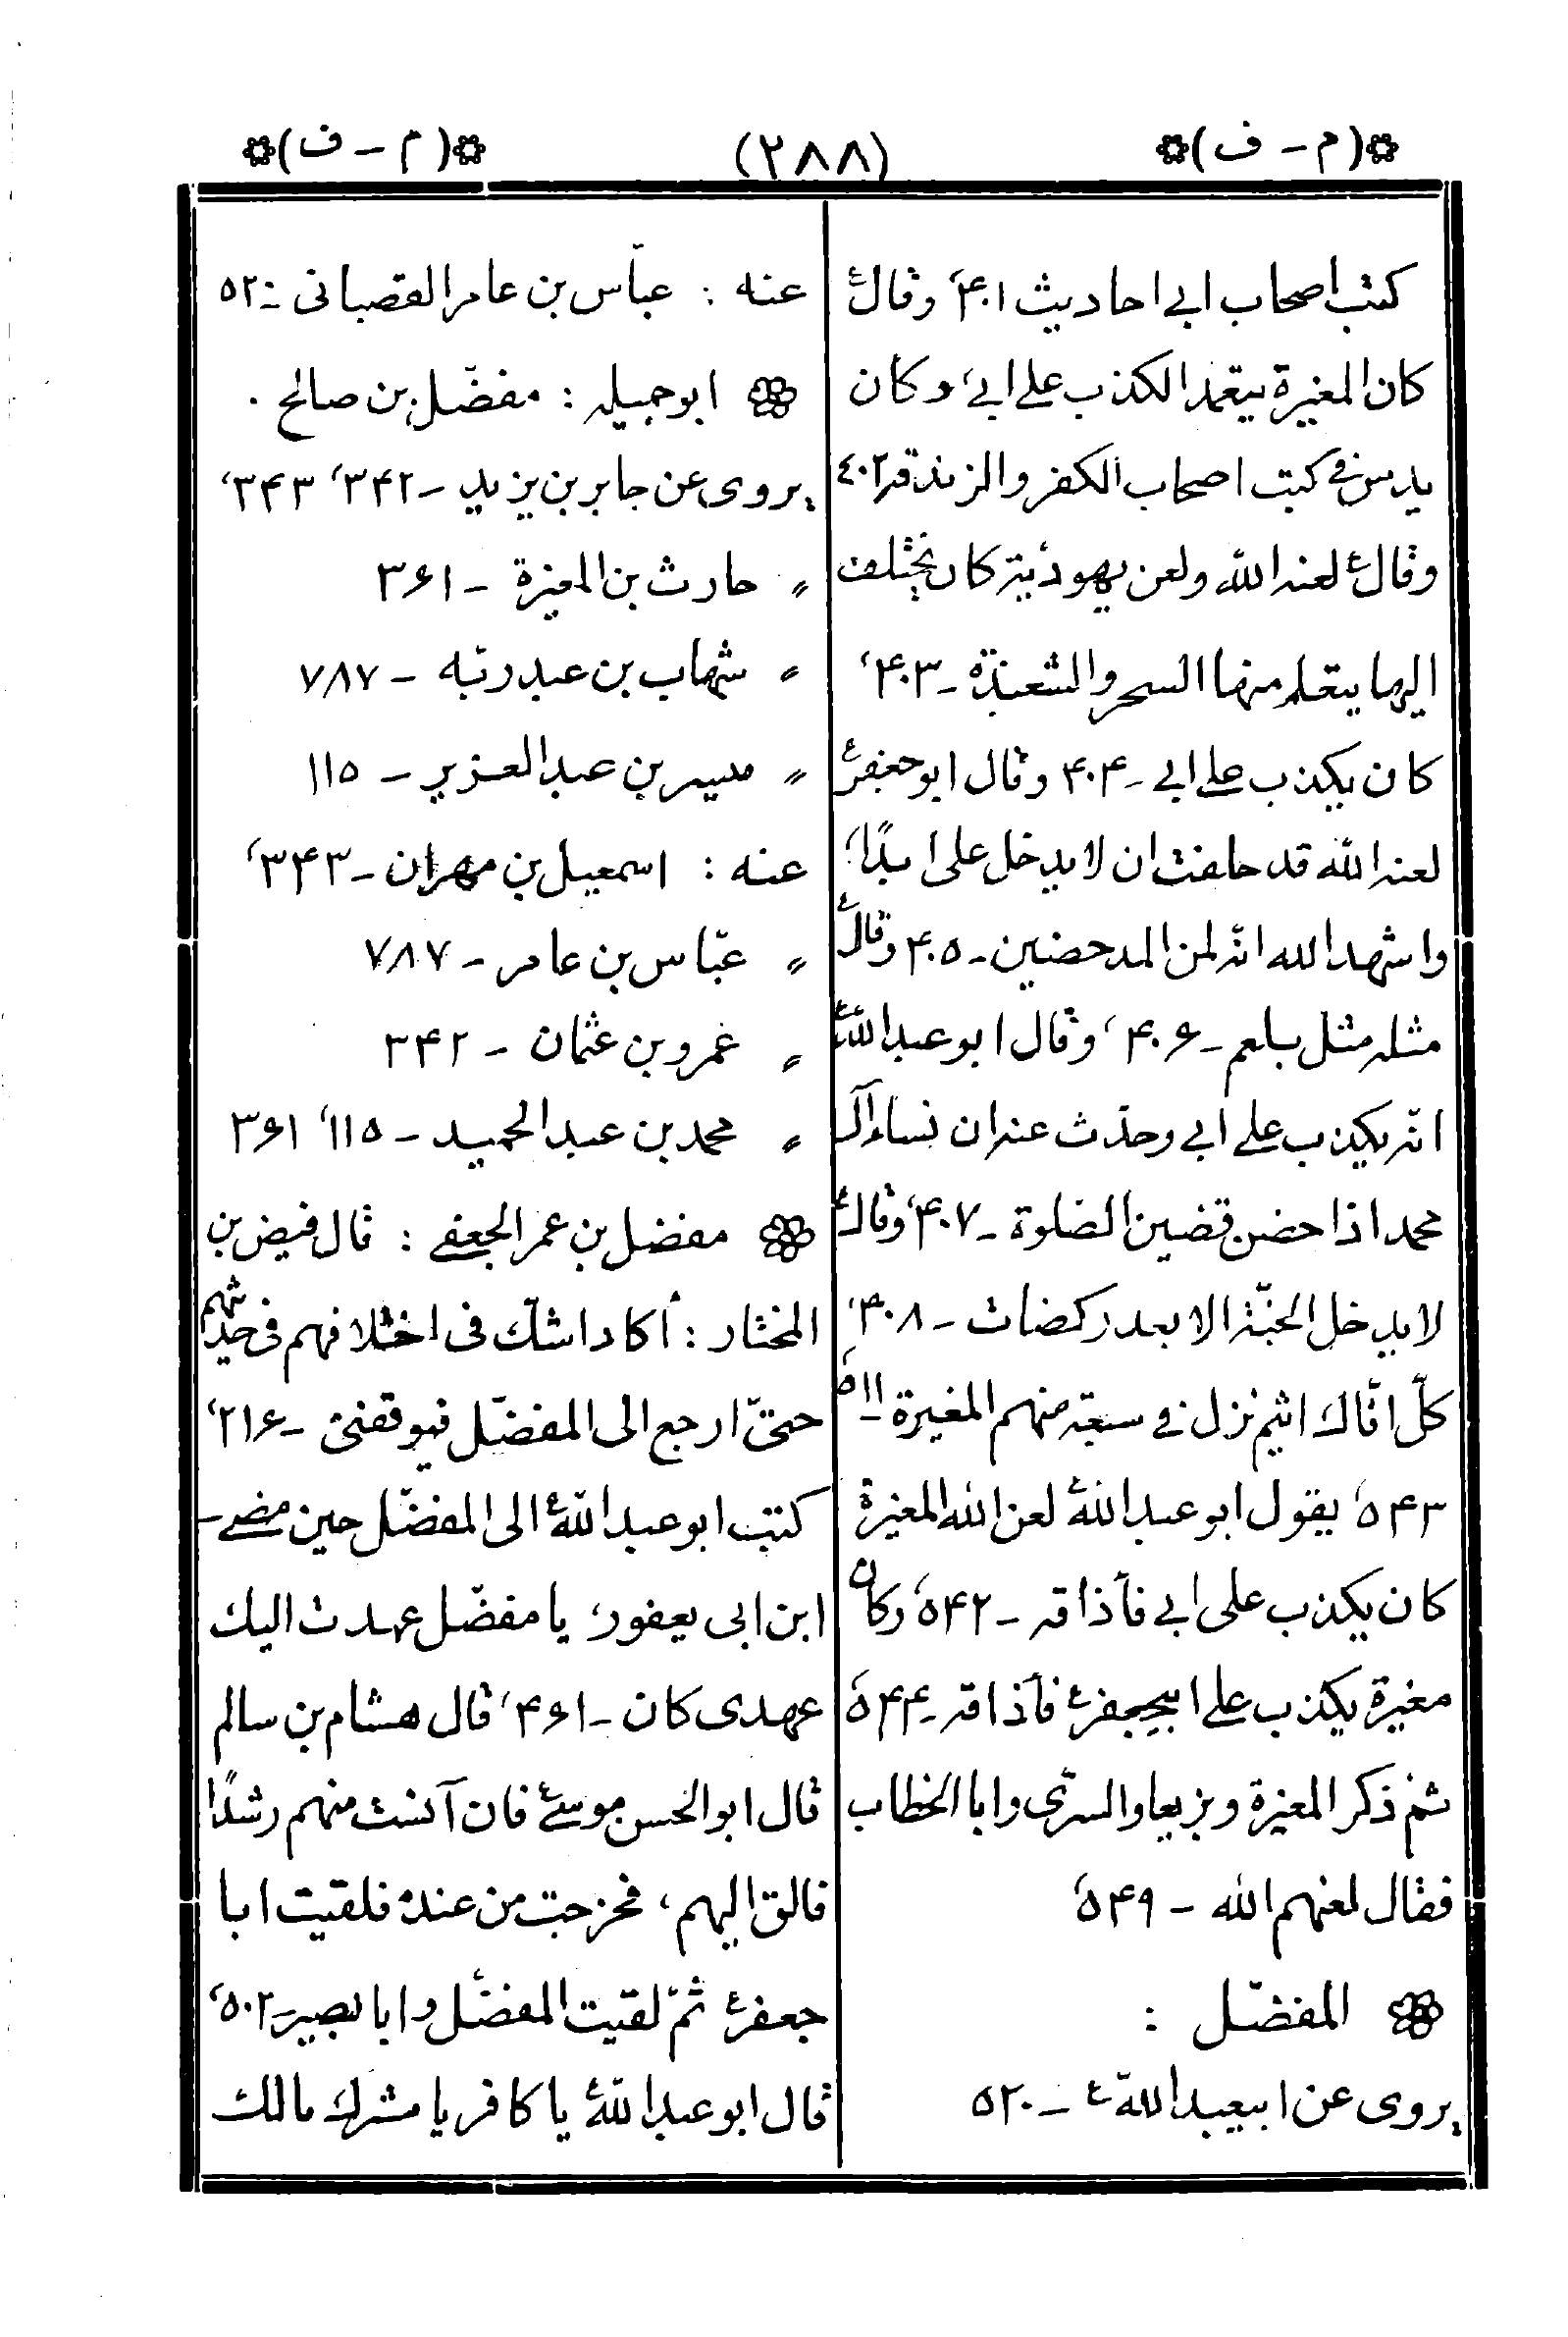 (م - ف) (٢٨٨) (م - ف)
كتب اصحاب ابي احاديث ۴۰۱، وقالؑ
كان المغيرة يتعمد الكذب على ابي، وكان
يدس في كتب اصحاب الكفر والزندقه ٤٠٢
وقالؑ لعنه الله ولعن يهوديّة كان يختلف
اليها يتعلم منها السحر والشعبذة ـ ۴۰۳،
كان يكذب على ابي ـ ۴۰۴ وقال ابوجعفرؑ
لعنه الله قد حلفت ان لا يدخل علىّ ابدًا،
واشهد الله انّه لمن المدحضين ـ ۴۰۵ وقالؑ
مثله مثل بلعم ـ ۴۰۶، وقال ابو عبد اللهؑ
انّه يكذب على ابي وحدّث عنه ان نساء آل
محمد اذا حضن قضين الصلوة ـ ۴۰۷، وقالؑ
لا يدخل الجنّة الا بعد ركضات ـ ۴۰۸،
كلّ افّاك اثيم نزل في سبعة منهم المغيرة ـ ۵۱۱،
۵۴۳، يقول ابو عبد اللهؑ لعن الله المغيرة
كان يكذب على ابي فأذاقه ـ ۵۴۲، وكان
مغيرة يكذب على ابيجعفرؑ فأذاقه ـ ۵۴۴،
ثم ذكر المغيرة وبزيعا والسرّى وابا الخطاب
فقال لعنهم الله ـ ۵۴۹،
المفضّل :
يروى عن ابيعبد اللهؑ ـ ۵۲۰
عنه : عبّاس بن عامر القصبانى ـ ۵۲۰
ابوجميله : مفضّل بن صالح .
يروى عن جابر بن يزيد ـ ۳۴۲، ۳۴۳،
〃 حارث بن المغيرة ـ ۳۶۱
〃 شهاب بن عبد ربّه ـ ۷۸۷
〃 ميسر بن عبد العزيز ـ ۱۱۵
عنه : اسمعيل بن مهران ـ ۳۴۳،
〃 عبّاس بن عامر ـ ۷۸۷
〃 عمرو بن عثمان ـ ۳۴۲
〃 محمد بن عبد الحميد ـ ۱۱۵، ۳۶۱
مفضل بن عمر الجعفي : قال فيض بن
المختار : أكاد اشكّ فى اختلافهم فى حديثهم
حتىّ ارجع الى المفضّل فيوقفنى ـ ۲۱۶،
كتب ابو عبد اللهؑ الى المفضّل حين مضى ـ
ابن ابى يعفور، يا مفضّل عهدت اليك
عهدى كان ـ ۴۶۱، قال هشام بن سالم
قال ابو الحسن موسىؑ فان آنست منهم رشدًا
فالق اليهم، فخرجت من عنده فلقيت ابا
جعفرؑ ثمّ لقيت المفضّل وابا بصير ـ ۵۰۲،
قال ابو عبد اللهؑ يا كافر يا مشرك مالك